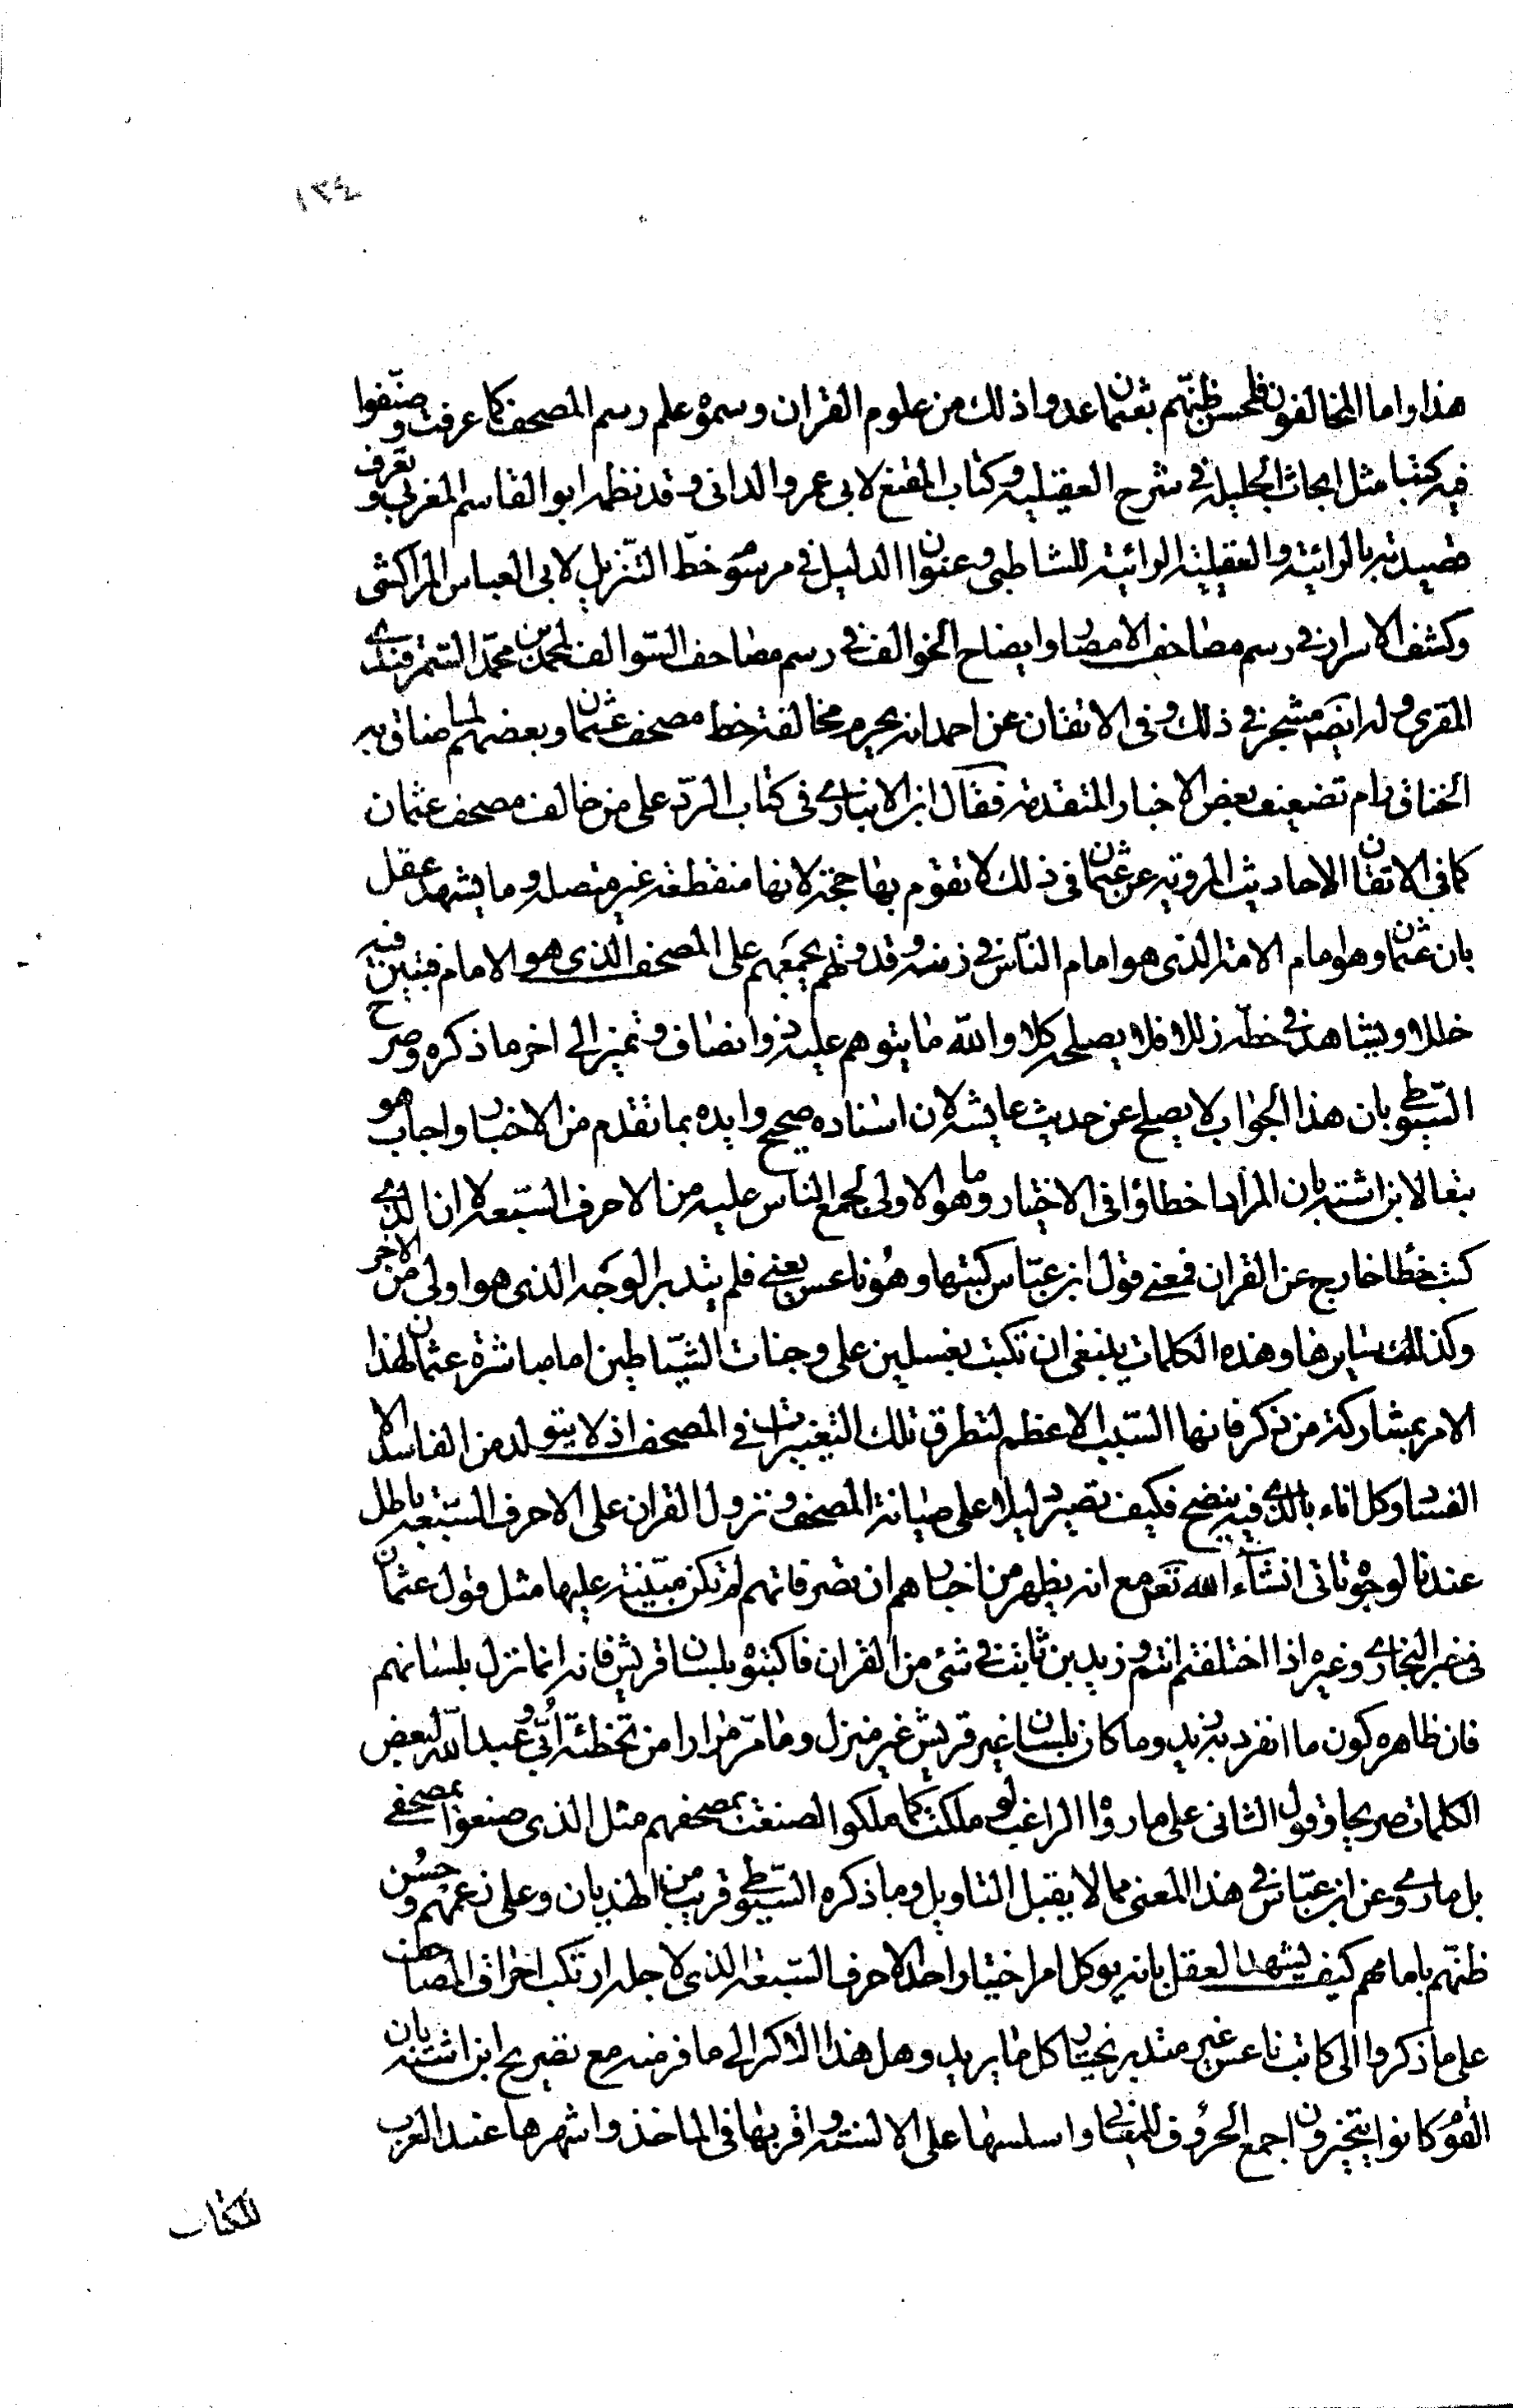 ١٣٤
هذا واما المخالفون فلحسن ظنّهم بعثمان عدوا ذلك من علوم القران وسموه علم رسم المصحف كما عرفت وصنّفوا
فيه كتبا مثل ابحاث الجليلة في شرح العقيلية وكتاب المقنع لابي عمرو الداني وقد نظمه ابو القاسم المغربي وتعرف
قصيدته بالرائية والعقيلية الرائية للشاطبي وعنوان الدليل في مرسوم خطّ التنزيل لابي العباس المراكشي
وكشف الاسرار في رسم مصاحف الامصار وايضاح الخوالف في رسم مصاحف السوالف لمحمد بن محمّد السّمرقندي
المقري وله ايضا مشجر في ذلك وفي الاتقان عن احمد انه يحرم مخالفة خط مصحف عثمان وبعضهم لما ضاق به
الخناق رام تضعيف بعض الاخبار المتقدمة فقال ابن الانباري في كتاب الردّ على من خالف مصحف عثمان
كما في الاتقان الاحاديث المروية عن عثمان في ذلك لا تقوم بها حجة لانها منقطعة غير متصلة وما يشهد عقل
بان عثمان وهو امام الامة الذي هو امام الناس في زمنه وقدوتهم يجمعهم على المصحف الذي هو الامام فيتبين فيه
خللا ويشاهد في خطّه زللا فلا يصلحه كلا والله ما يتوهم عليه ذو انصاف وتميز الى اخر ما ذكره وصرح
السّيوطي بان هذا الجواب لا يصلح عن حديث عايشه لان اسناده صحيح وايده بما تقدم من الاخبار واجاب هو
تبعا لابن اشته بان المراد اخطاؤا في الاختيار وما هو الاولى لجمع الناس عليه من الاحرف السّبعة لا ان الذي
كتب خطا خارج عن القران فمعنى قول ابن عبّاس كتبها وهو ناعس يعنى فلم يتدبر الوجه الذي هو اولى من الاخر
وكذلك سايرها وهذه الكلمات ينبغي ان تكتب بغسلين على وجنات الشّياطين اما مباشرة عثمان لهذا
الامر بمشاركة من ذكر فانها السّبب الاعظم لتطرق تلك التغييرات في المصحف اذ لا يتولد من الفاسد الا
الفساد وكل اناء بالذي فيه ينضح فكيف تصير دليلا على صيانة المصحف ونزول القران على الاحرف السّبعة باطل
عندنا لوجوه تاتي انشاء الله تعالى مع انه يظهر من اخبارهم ان تصرفاتهم لم تكن مبتنية عليها مثل قول عثمان
في خبر البخاري وغيره اذا اختلفتم انتم وزيد بن ثابت في شئ من القران فاكتبوه بلسان قريش فانه انما نزل بلسانهم
فان ظاهره كون ما انفرد به زيد وما كان بلسان غير قريش غير منزل وما مرّ مرارا من تخطئة اُبيّ وعبد الله لبعض
الكلمات صريحا وقول الثاني على ما رواه الراغب لو ملكت كما ملكوا لصنعت بمصحفهم مثل الذي صنعوا بمصحفي
بل ما روي عن ابن عبّاس في هذا المعنى مما لا يقبل التاويل وما ذكره السّيوطي قريب من الهذيان وعلى زعمهم وحسن
ظنّهم بامامهم كيف يشهد العقل بانه يوكل امر اختيار احد الاحرف السّبعة الذي لاجله ارتكب احراق المصاحف
على ما ذكروا الى كاتب ناعس غير متدبر يختار كل ما يريد وهل هذا الا كرالى ما فرمنه مع تصريح ابن اشته بان
القوم كانوا يتخيرون اجمع الحروف للمعاني واسلسها على الالسنة واقربها في الماخذ واشهرها عند العرب
للكتاب